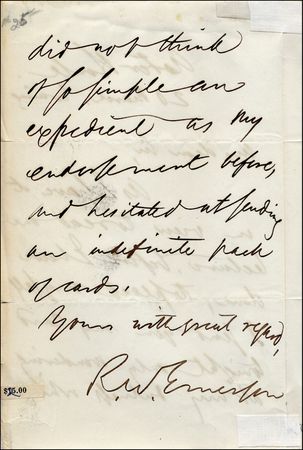 25
did not think
of so simple an
expedient as my
endorsement before,
and hesitated at sending
an indefinite pack
of cards.
Yours with great regard,
R. W. Emerson
$15.00